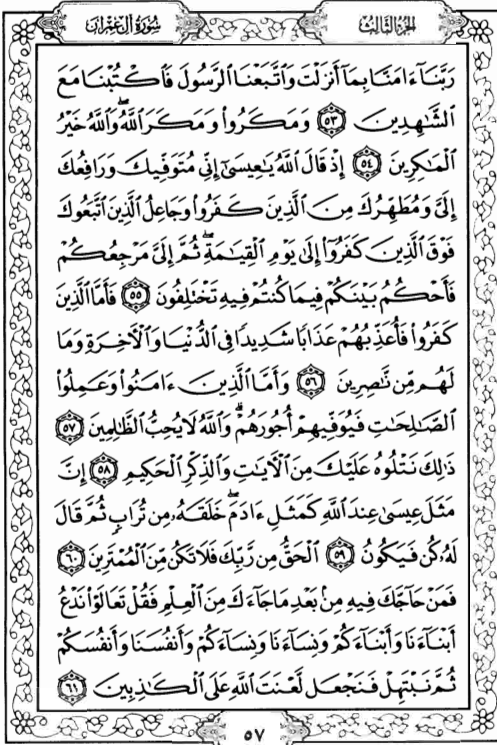 سُورَةُ آلِ عِمْرَان
الجُزءُ الثَّالِثُ
رَبَّنَآ ءَامَنَّا بِمَآ أَنزَلْتَ وَٱتَّبَعْنَا ٱلرَّسُولَ فَٱكْتُبْنَا مَعَ
ٱلشَّٰهِدِينَ ٥٣ وَمَكَرُوا۟ وَمَكَرَ ٱللَّهُ ۖ وَٱللَّهُ خَيْرُ
ٱلْمَٰكِرِينَ ٥٤ إِذْ قَالَ ٱللَّهُ يَٰعِيسَىٰٓ إِنِّى مُتَوَفِّيكَ وَرَافِعُكَ
إِلَىَّ وَمُطَهِّرُكَ مِنَ ٱلَّذِينَ كَفَرُوا۟ وَجَاعِلُ ٱلَّذِينَ ٱتَّبَعُوكَ
فَوْقَ ٱلَّذِينَ كَفَرُوٓا۟ إِلَىٰ يَوْمِ ٱلْقِيَٰمَةِ ۖ ثُمَّ إِلَىَّ مَرْجِعُكُمْ
فَأَحْكُمُ بَيْنَكُمْ فِيمَا كُنتُمْ فِيهِ تَخْتَلِفُونَ ٥٥ فَأَمَّا ٱلَّذِينَ
كَفَرُوا۟ فَأُعَذِّبُهُمْ عَذَابًا شَدِيدًا فِى ٱلدُّنْيَا وَٱلْءَاخِرَةِ وَمَا
لَهُم مِّن نَّٰصِرِينَ ٥٦ وَأَمَّا ٱلَّذِينَ ءَامَنُوا۟ وَعَمِلُوا۟
ٱلصَّٰلِحَٰتِ فَيُوَفِّيهِمْ أُجُورَهُمْ ۗ وَٱللَّهُ لَا يُحِبُّ ٱلظَّٰلِمِينَ ٥٧
ذَٰلِكَ نَتْلُوهُ عَلَيْكَ مِنَ ٱلْءَايَٰتِ وَٱلذِّكْرِ ٱلْحَكِيمِ ٥٨ إِنَّ
مَثَلَ عِيسَىٰ عِندَ ٱللَّهِ كَمَثَلِ ءَادَمَ ۖ خَلَقَهُۥ مِن تُرَابٍ ثُمَّ قَالَ
لَهُۥ كُن فَيَكُونُ ٥٩ ٱلْحَقُّ مِن رَّبِّكَ فَلَا تَكُن مِّنَ ٱلْمُمْتَرِينَ ٦٠
فَمَنْ حَآجَّكَ فِيهِ مِنۢ بَعْدِ مَا جَآءَكَ مِنَ ٱلْعِلْمِ فَقُلْ تَعَالَوْا۟ نَدْعُ
أَبْنَآءَنَا وَأَبْنَآءَكُمْ وَنِسَآءَنَا وَنِسَآءَكُمْ وَأَنفُسَنَا وَأَنفُسَكُمْ
ثُمَّ نَبْتَهِلْ فَنَجْعَل لَّعْنَتَ ٱللَّهِ عَلَى ٱلْكَٰذِبِينَ ٦١
٥٧